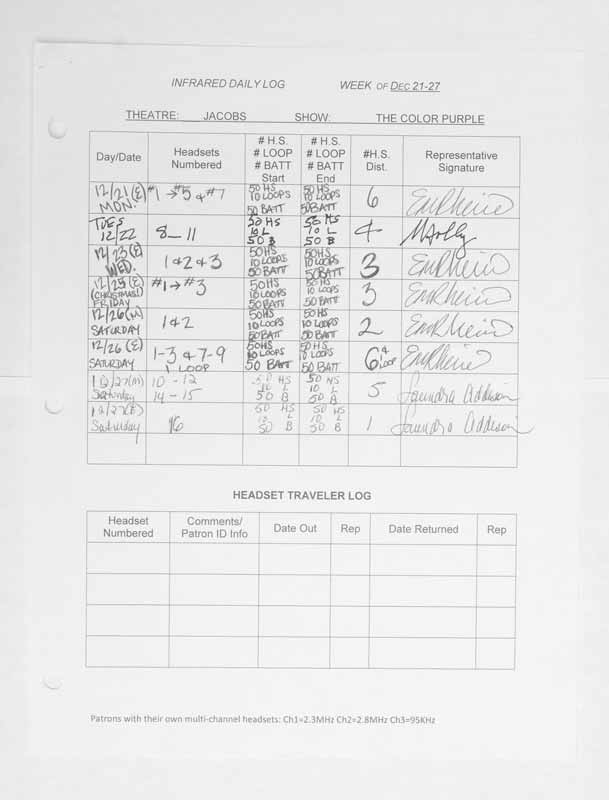 INFRARED DAILY LOG WEEK OF DEC 21-27
THEATRE: JACOBS SHOW: THE COLOR PURPLE
Day/Date
Headsets
Numbered
# H.S.
# LOOP
# BATT
Start
# H.S.
# LOOP
# BATT
End
#H.S.
Dist.
Representative
Signature
12/21(E)
MON.
#1→#5 & #7
50 HS
10 LOOPS
50 BATT
50 HS
10 LOOPS
50 BATT
6
TUES
12/22
8-11
50 HS
10 L
50 B
50 HS
10 L
50 B
4
12/23(E)
WED.
1 & 2 & 3
50HS
10 LOOPS
50 BATT
50HS
10 LOOPS
50 BATT
3
12/25(E)
(CHRISTMAS!)
FRIDAY
#1→#3
50HS
10 LOOPS
50 BATT
50HS
10 LOOPS
50 BATT
3
12/26(M)
SATURDAY
1 & 2
50HS
10 LOOPS
50 BATT
50HS
10 LOOPS
50 BATT
2
12/26 (E)
SATURDAY
1-3 & 7-9
1 LOOP
50HS
10 LOOPS
50 BATT
50HS
10 LOOPS
50 BATT
6 & 1 LOOP
12/27(M)
Saturday
10 - 12
14 - 15
50 HS
10 L
50 B
50 HS
10 L
50 B
5
Saundra Addison
12/27(E)
Saturday
16
50 HS
10 L
50 B
50 HS
10 L
50 B
1
Saundra Addison
HEADSET TRAVELER LOG
Headset
Numbered
Comments/
Patron ID Info
Date Out
Rep
Date Returned
Rep
Patrons with their own multi-channel headsets: Ch1=2.3MHz Ch2=2.8MHz Ch3=95KHz